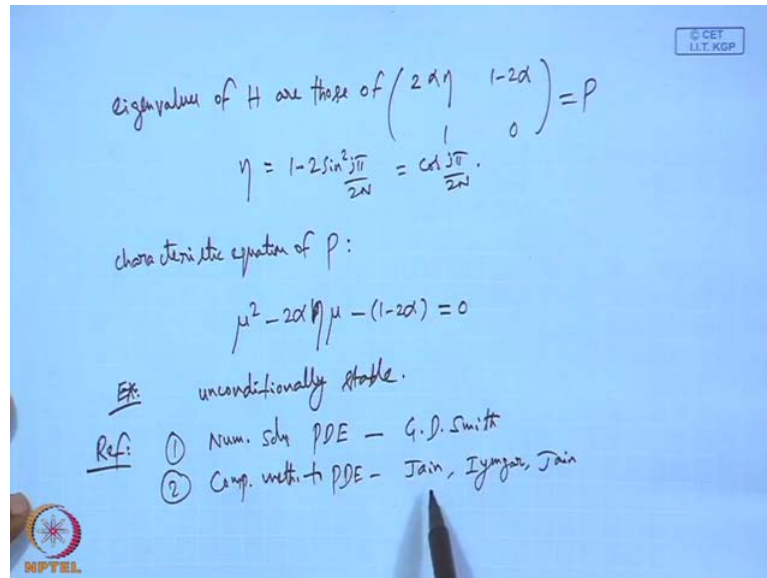 © CET
I.I.T. KGP
eigenvalues of H are those of ( 2αη 1-2α ; 1 0 ) = P
η = 1-2sin² jπ/2N = cos jπ/2N.
characteristic equation of P:
μ² - 2αημ - (1-2α) = 0
Ex: unconditionally stable.
Ref: ① Num. soln PDE - G.D. Smith
② Comp. meth. to PDE - Jain, Iyengar, Jain
NPTEL